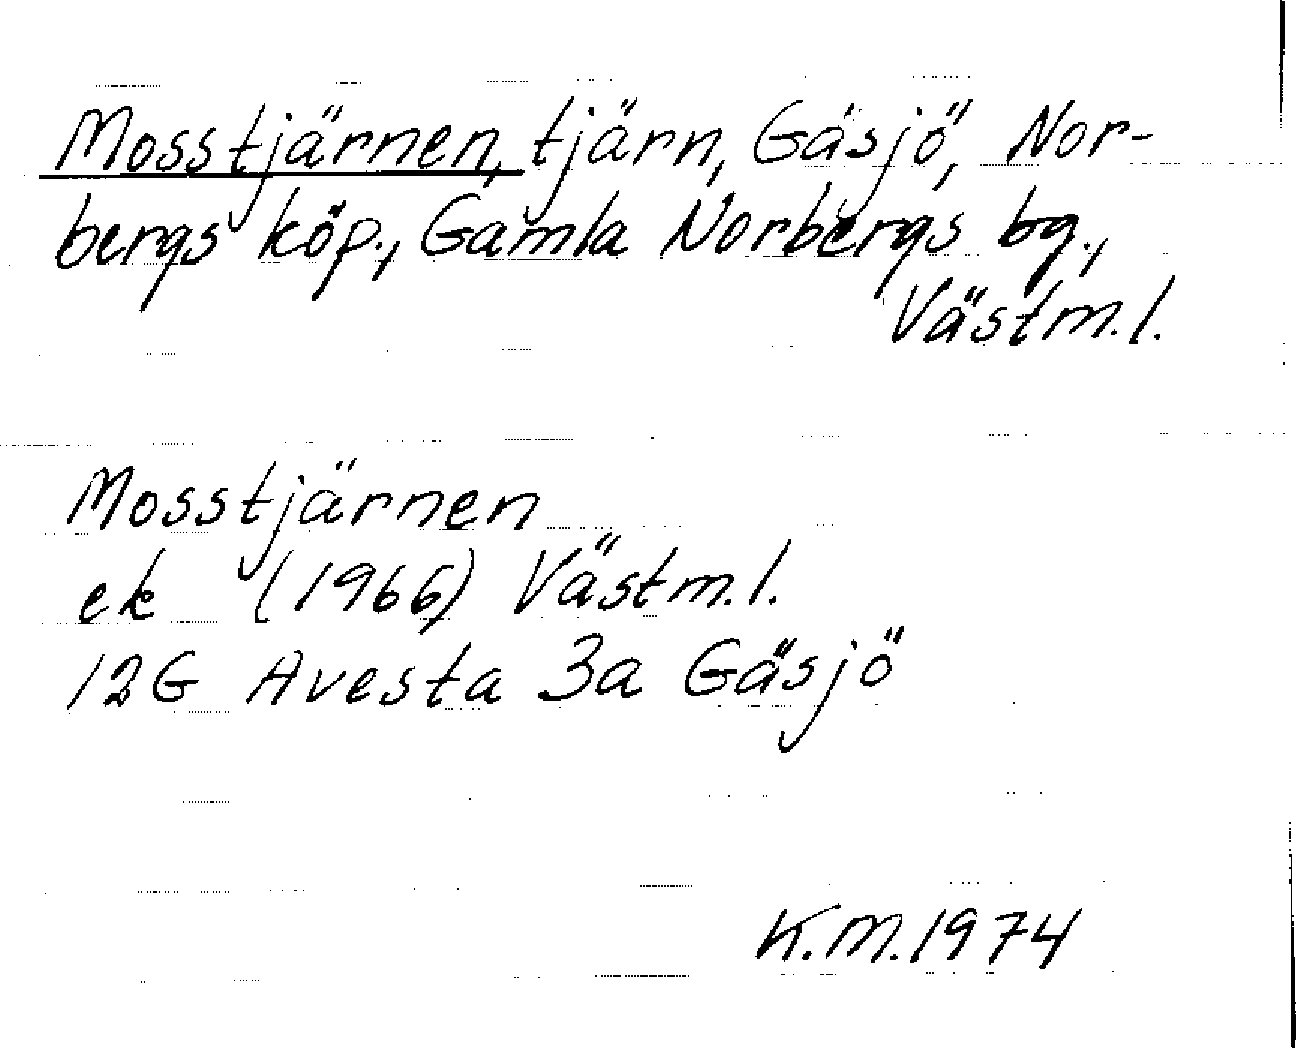 Mosstjärnen, tjärn, Gäsjö, Nor-
bergs köp., Gamla Norbergs bg.,
Västm.l.
Mosstjärnen
ek (1966) Västm.l.
12G Avesta 3a Gäsjö
K.M.1974